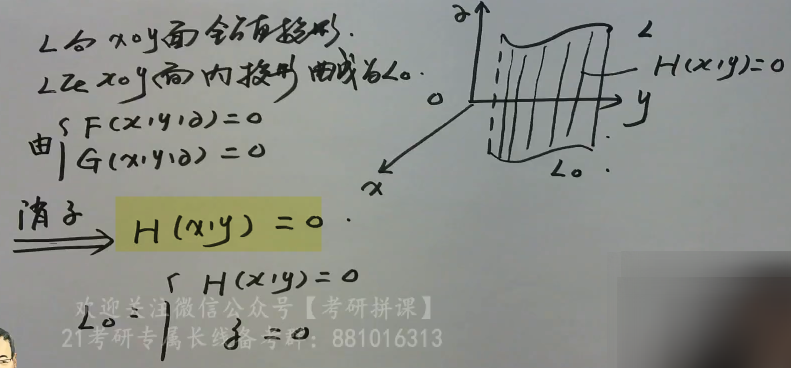 L向xoy面全方投影.
L在xoy面内投影曲线为L₀.
由{F(x,y,z)=0
G(x,y,z)=0
消z ⟹ H(x,y)=0.
L₀={H(x,y)=0
z=0
z
L
H(x,y)=0
o
y
x
L₀.
欢迎关注微信公众号【考研拼课】
21考研专属长线备考群：881016313